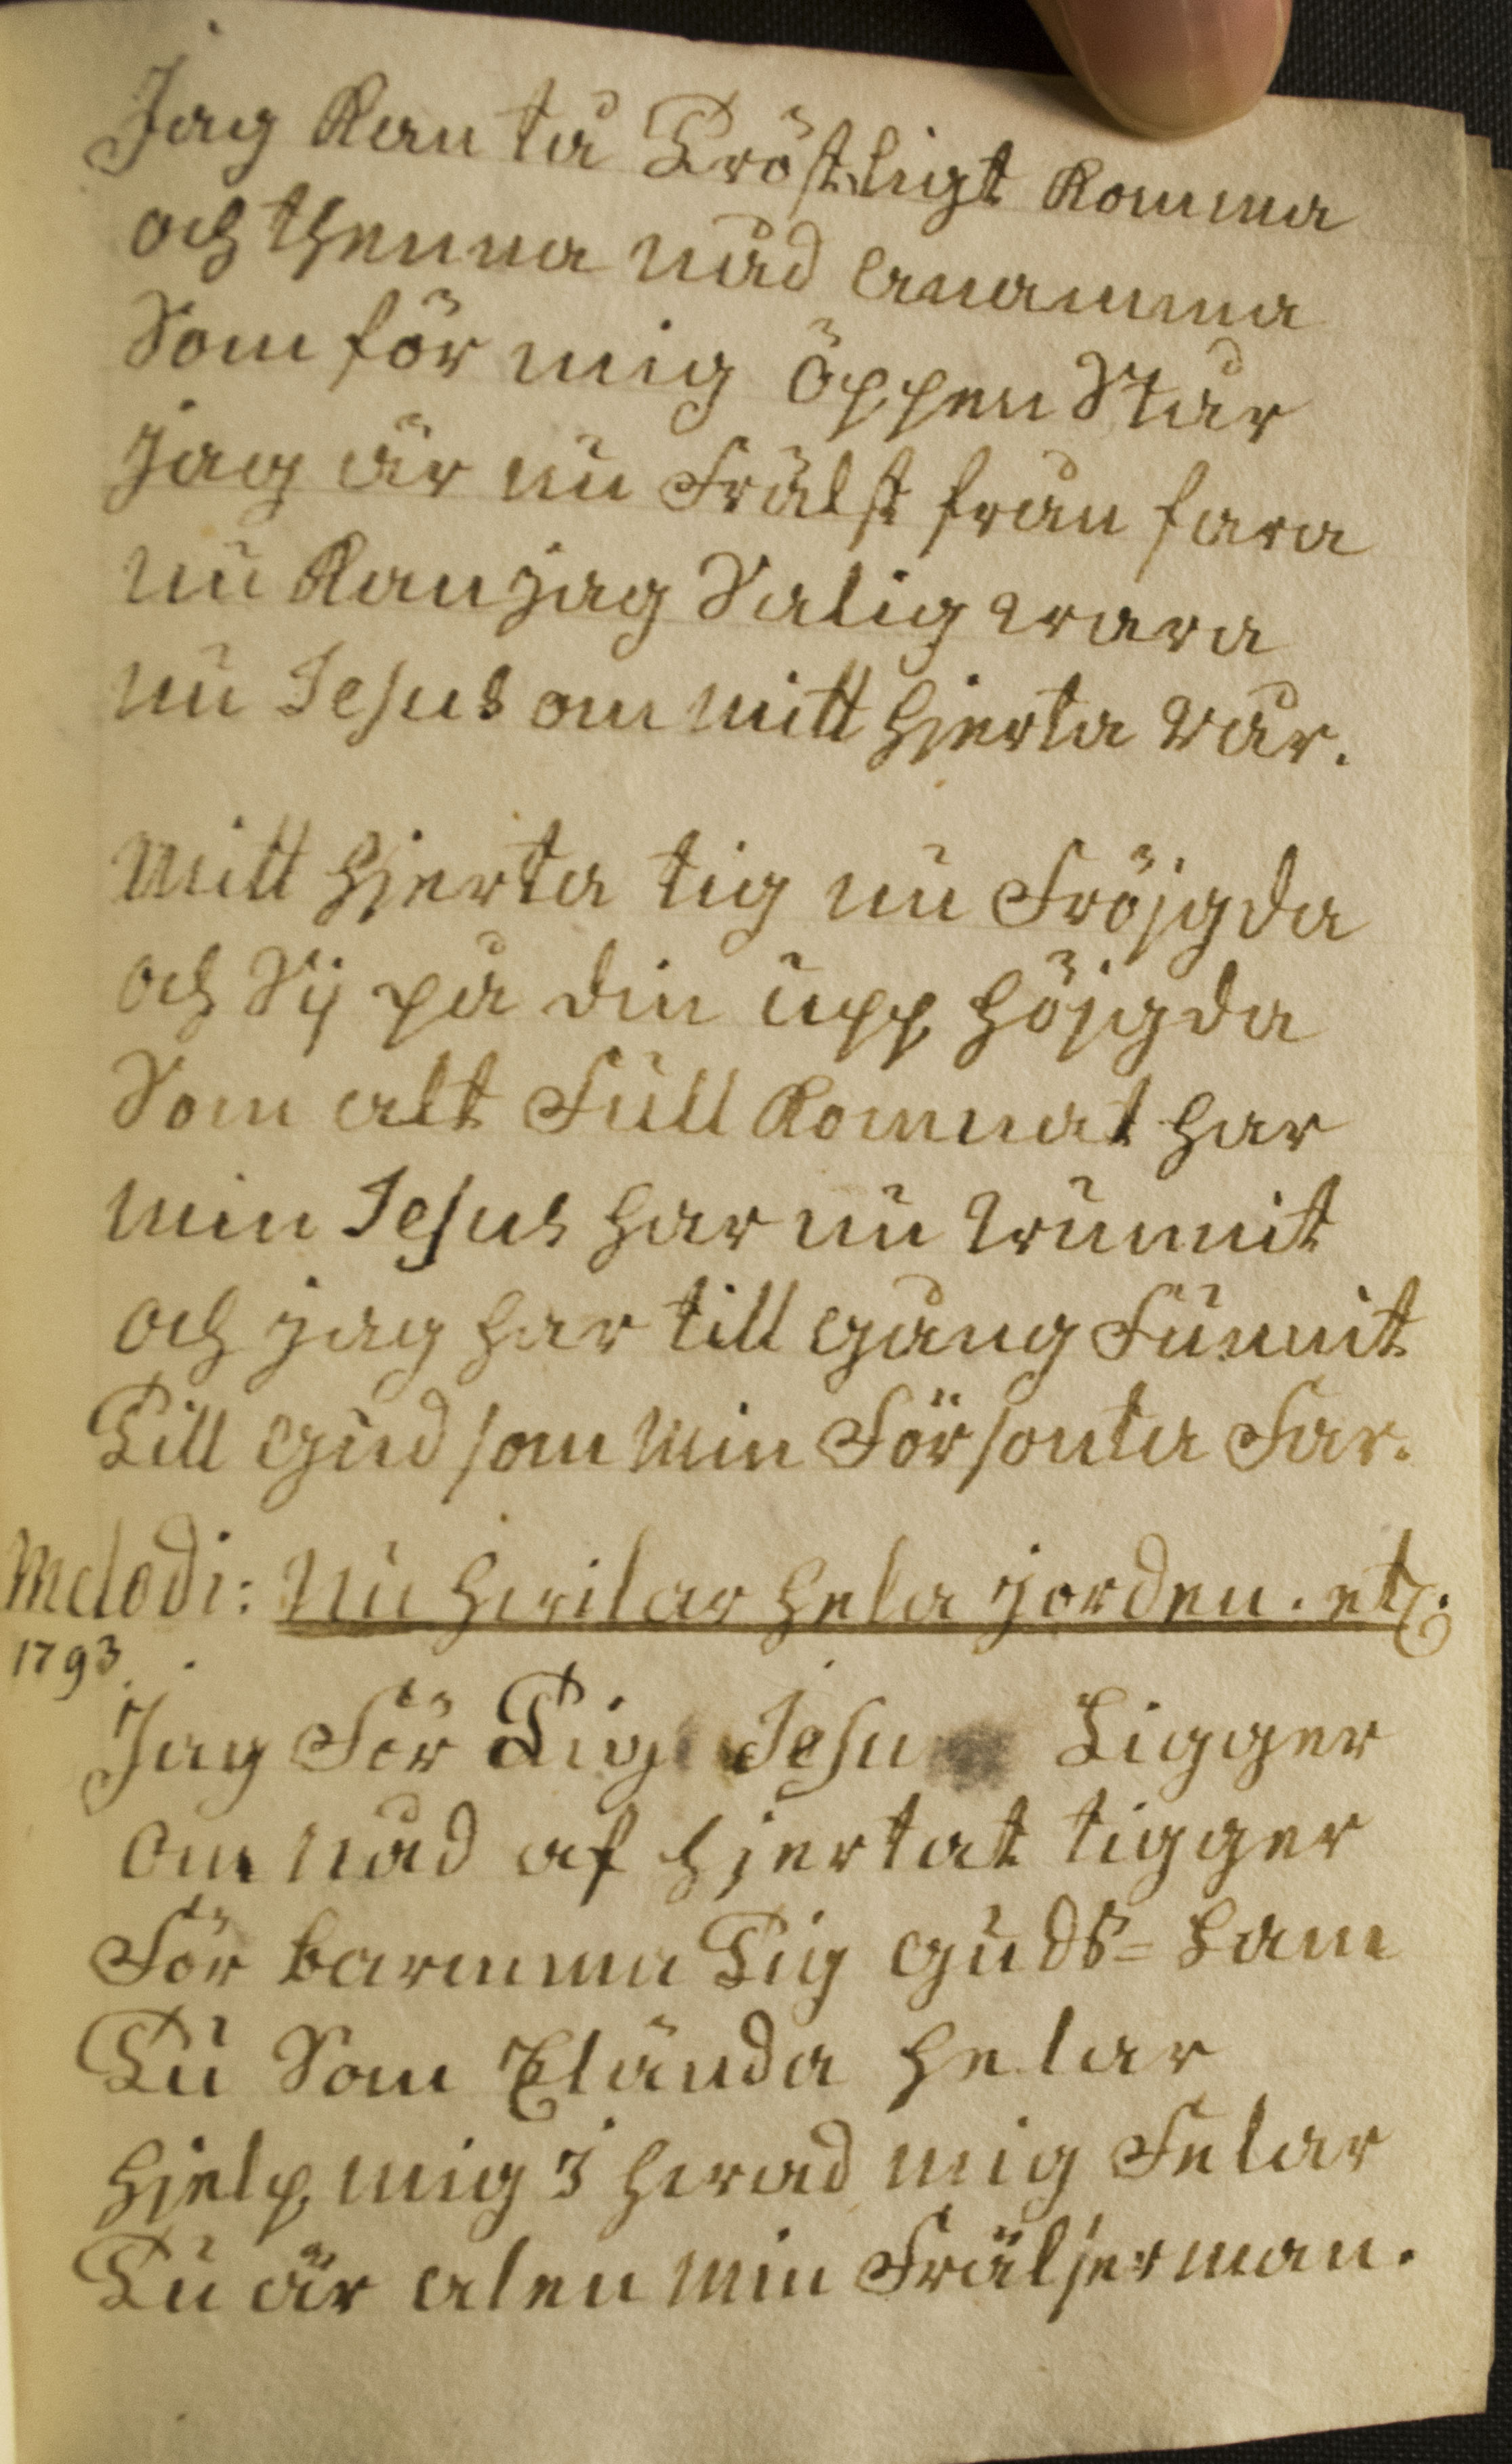 Jag kan tå Tröstligt komma
och thenna nåd anamma
Som för mig öppen Står
Jag är nu Frälst från fara
nu kan jag Salig wara
nu Jesus om mitt hjerta rår.
mitt hjerta tig nu Fröjgda
och Sij på din upp höjgda
Som alt Full komnat har
min Jesus har nu wunnit
och jag har till gång Funnit
Till Gud som min Försonta Far.
Melodi: Nu hwilar hela jorden. etc.
1793.
Jag För Tig Jesu Ligger
om nåd af hjertat tigger
För barmma Tig Guds= Lam
Tu Som Elända helar
hjelp mig i hwad mig Felar
Tu är alen min Frälserman.